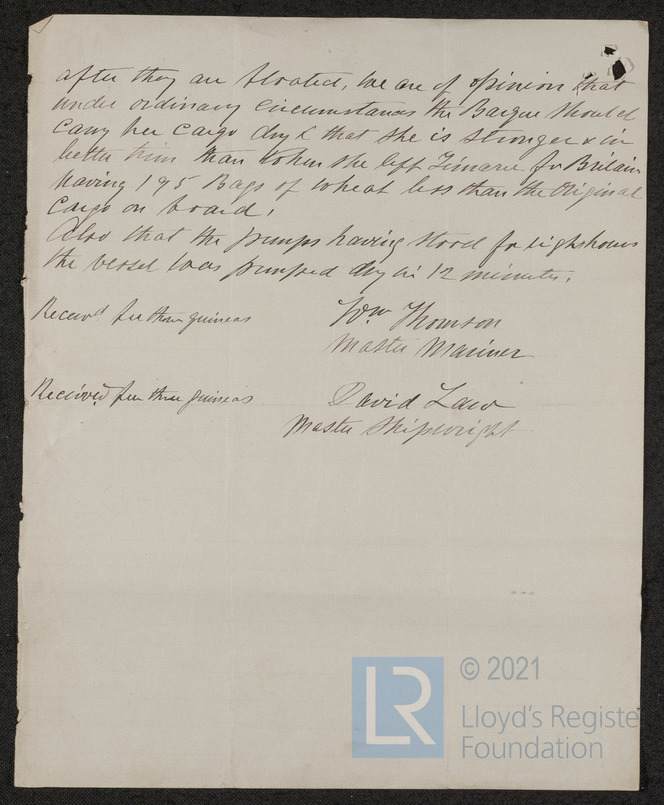 after they are floated, We are of opinion that
under ordinary Circumstances the Barque should
Carry her Cargo dry & that she is stronger & in
better trim than when she left Timaru for Britain
having 195 Bags of Wheat less than the Original
Cargo on board.
Also that the pumps having stood for eight hours
the vessel was pumped dry in 12 minutes.
Received fee three guineas
Wm Thomson
Master Mariner
Received fee three guineas
David Law
Master Shipwright
LR
© 2021
Lloyd's Registe
Foundation